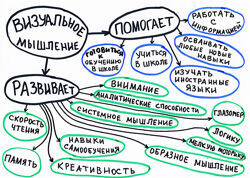 ВИЗУАЛЬНОЕ
МЫШЛЕНИЕ
ПОМОГАЕТ
РАБОТАТЬ
С ИНФОРМАЦИЕЙ
ОСВАИВАТЬ
ЛЮБЫЕ НОВЫЕ
НАВЫКИ
ГОТОВИТЬСЯ
К
ОБУЧЕНИЮ
В ШКОЛЕ
УЧИТЬСЯ
В
ШКОЛЕ
ИЗУЧАТЬ
ИНОСТРАННЫЕ
ЯЗЫКИ
РАЗВИВАЕТ
ВНИМАНИЕ
АНАЛИТИЧЕСКИЕ СПОСОБНОСТИ
СИСТЕМНОЕ МЫШЛЕНИЕ
ГЛАЗОМЕР
ЛОГИКУ
МЕЛКУЮ МОТОРИКУ
ОБРАЗНОЕ МЫШЛЕНИЕ
СКОРОСТЬ
ЧТЕНИЯ
НАВЫКИ
САМООБУЧЕНИЯ
ПАМЯТЬ
КРЕАТИВНОСТЬ